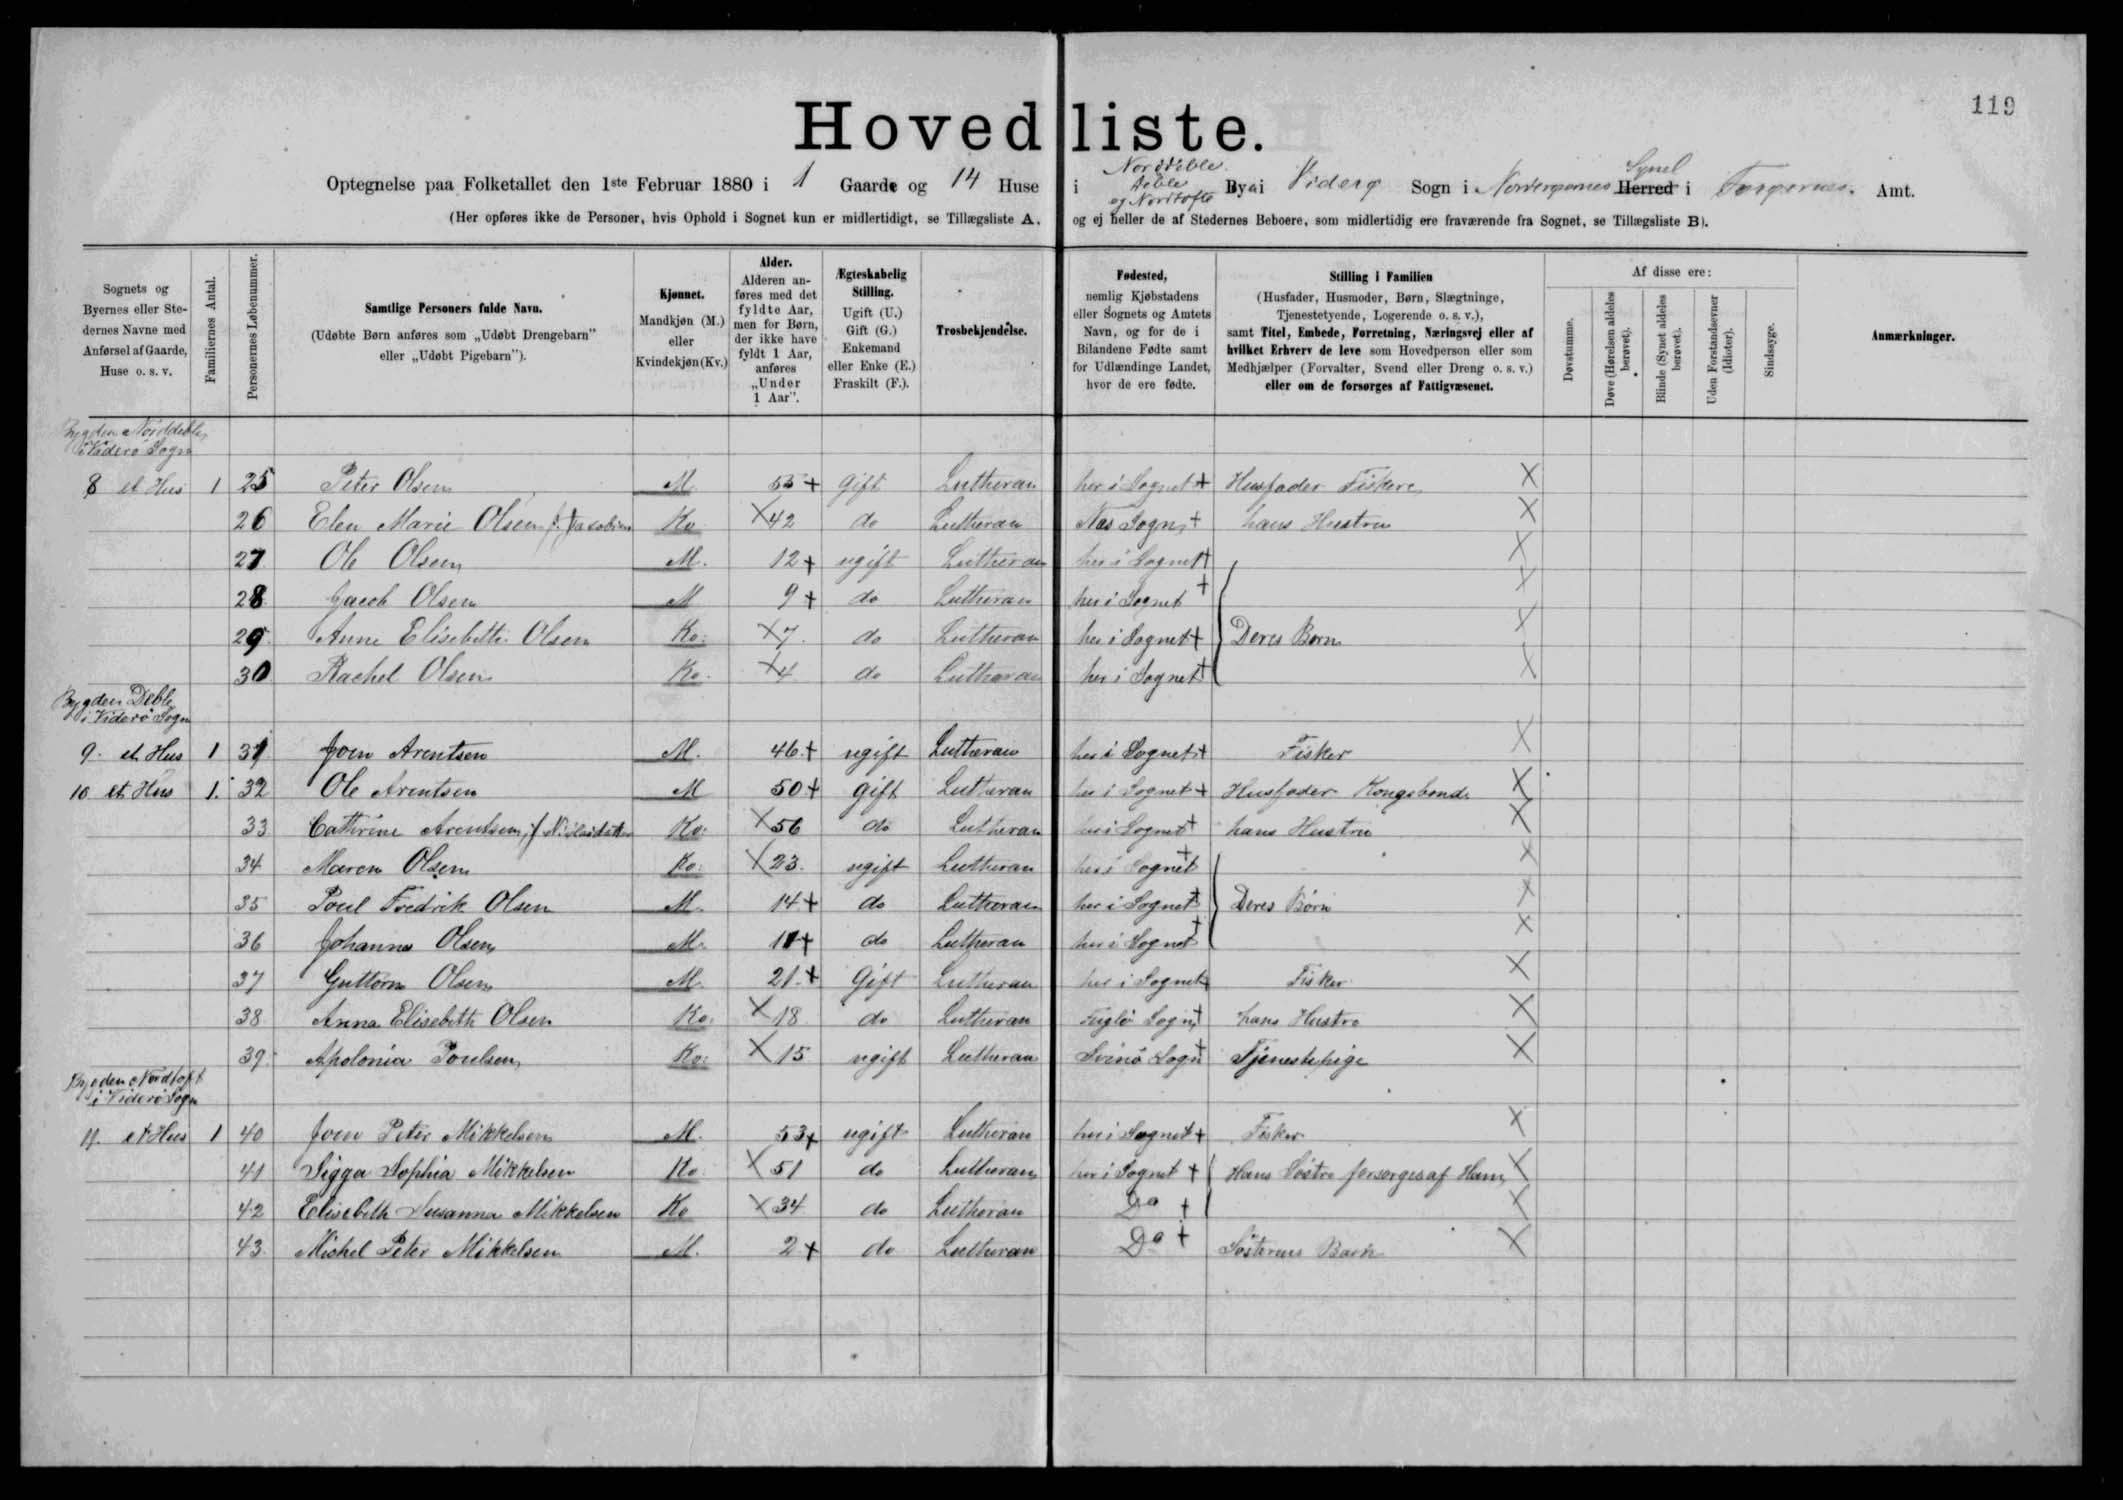 119
Hovedliste.
Optegnelse paa Folketallet den 1ste Februar 1880 i 1 Gaarde og 14 Huse i Norddeble Deble og Nordtofte Byer i Viderø Sogn i Norderøernes Herred Syssel i Færøernes Amt.
(Her opføres ikke de Personer, hvis Ophold i Sognet kun er midlertidigt, se Tillægsliste A. og ej heller de af Stedernes Beboere, som midlertidig ere fraværende fra Sognet, se Tillægsliste B).
Sognets og Byernes eller Stedernes Navne med Anførsel af Gaarde, Huse o. s. v.
Familiernes Antal.
Personernes Løbenummer.
Samtlige Personers fulde Navn. (Udøbte Børn anføres som „Udøbt Drengebarn" eller „Udøbt Pigebarn").
Kjønnet. Mandkjøn (M.) eller Kvindekjøn (Kv.)
Alder. Alderen anføres med det fyldte Aar, men for Børn, der ikke have fyldt 1 Aar, anføres „Under 1 Aar".
Ægteskabelig Stilling. Ugift (U.) Gift (G.) Enkemand eller Enke (E.) Fraskilt (F.).
Trosbekjendelse.
Fødested, nemlig Kjøbstadens eller Sognets og Amtets Navn, og for de i Bilandene Fødte samt for Udlændinge Landet, hvor de ere fødte.
Stilling i Familien (Husfader, Husmoder, Børn, Slægtninge, Tjenestetyende, Logerende o. s. v.), samt Titel, Embede, Forretning, Næringsvej eller af hvilket Erhverv de leve som Hovedperson eller som Medhjælper (Forvalter, Svend eller Dreng o. s. v.) eller om de forsørges af Fattigvæsenet.
Af disse ere:
Døvstumme.
Døve (Hørelsen aldeles berøvet).
Blinde (Synet aldeles berøvet).
Uden Forstandsevner (Idioter).
Sindssyge.
Anmærkninger.
Bygden Norddeble
i Viderö Sogn
8 et Hus 1 25 Peter Olsen M. 53 + gift Lutheran her i Sognet + Husfader Fiskere X
26 Elen Marie Olsen f. Jacobsen Kv X 42 do Lutheran Næs Sogn + hans Hustru X
27 Ole Olsen M. 12 + ugift Lutheran her i Sognet + X
28 Jacob Olsen M 9 + do Lutheran her i Sognet + X
29. Anne Elisebeth Olsen Kv. X 7. do Lutheran her i Sognet + Deres Børn X
30 Rachel Olsen Kv. X 4 do Lutheran her i Sognet + X
Bygden Deble
i Viderö Sogn
9. et Hus 1 31 Joen Arentsen M. 46. + ugift Lutheran her i Sognet + Fisker X
10 et Hus 1. 32 Ole Arentsen M 50 + gift Lutheran her i Sognet + Husfader Kongsbonde X
33 Cathrine Arentsen, f. Kv. X 56 do Lutheran her i Sognet + hans Hustru X
34 Maren Olsen Kv. X 23. ugift Lutheran her i Sognet + X
35 Poul Fredrik Olsen M. 14 + do Lutheran her i Sognet + Deres Börn X
36 Johannes Olsen M. 11 + do Lutheran her i Sognet + X
37 Guttorm Olsen M. 21. + Gift Lutheran her i Sognet + Fisker X
38 Anna Elisebeth Olsen Kv. X 18 do Lutheran Fuglö Sogn + hans Hustro X
39. Apolonia Poulsen Kv. X 15 ugift Lutheran Svinö Sogn + Tjenestepige X
Bygden Nordtoft
i Viderö Sogn
11. et Hus 1 40 Joen Peter Mikkelsen M. 53 + ugift Lutheran her i Sognet + Fisker X
41 Sigga Sophia Mikkelsen Kv X 51 do Lutheran her i Sognet + Hans Söstre forsørges af Ham X
42 Elisebeth Susanna Mikkelsen Kv X 34 do Lutheran Do + X
43. Michel Peter Mikkelsen M. 2 + do Lutheran Do + Söstrens Barn X